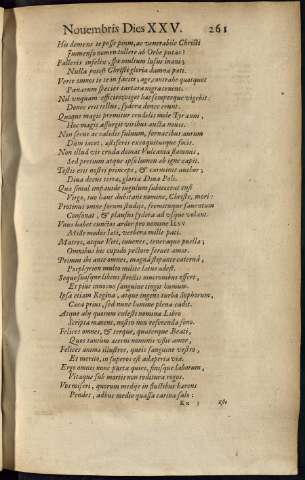 Nouembris Dies XXV. 261
Hic demens te posse putas, ac venerabile Christi
Immensum nomen tollere ab Orbe putas?
Falleris infelix, spe multum lusus inani;
Nulla potest Christi gloria damna pati.
Verte omnes te iam facies, age, contrahe quatquot
Panarum species tartara nigra ferunt.
Nil unquam efficies; viget hac semperque vigebit
Donec erit tellus, sydera donec erunt.
Quaque magis premitur crudeli mole Tyranni,
Hoc magis assurgit viribus aucta nouis.
Non secus ac calidis fuluum, fornacibus aurum
Dum iacet, adsistens excoquiturque facis.
Non illud vis cruda domat Vulcania flammis,
Sed pretium atque ipsa lumen ab igne capit.
Testis erit nostri princeps, & carminis auctor;
Diua decus terra, gloria Diua Poli.
Qua simul impauida iugulum subiecerat ensi
Virgo, tuo hanc dubitans nomine, Christe, mori:
Protinus omne forum plaudis, fremituque
Consonat, & plausus sydera ad vsque volant.
Viues habet cunctus ardor pro nomine Iesv
Mille modis lati, verbera mille pati.
Matres, atque Viri, iuuenes, teneraque puella;
Omnibus hic cupido pectore feruet amor.
Primus ibi ante omnes, magna stipante caterua,
Porphyrius multo milite latus adest.
Sequesuosque libens strictis mucronibus offert,
Et pius innocuo sanguine tingit humum.
Ipsa etiam Regina, atque ingens turba Sophorum,
Caca prius, sed nunc lumine plena cadit.
Atque alij quorum celesti nomina Libro
Scripta manent, nostro non referenda sono.
Felices omnes, & terque, quaterque Beati,
Ques tantum aterni numinis vssit amor.
Felices anima illustres, queis sanguine vestro,
Et merito, in superos est adaperta via.
Ergo omnis nunc parta quies, finisque laborum,
Vitaque sub mortis non reditura iugo.
Vos miseri, quorum medijs in fluctibus harens
Pendet, adhuc medio quassa carina salo:
Kk 3 Iste